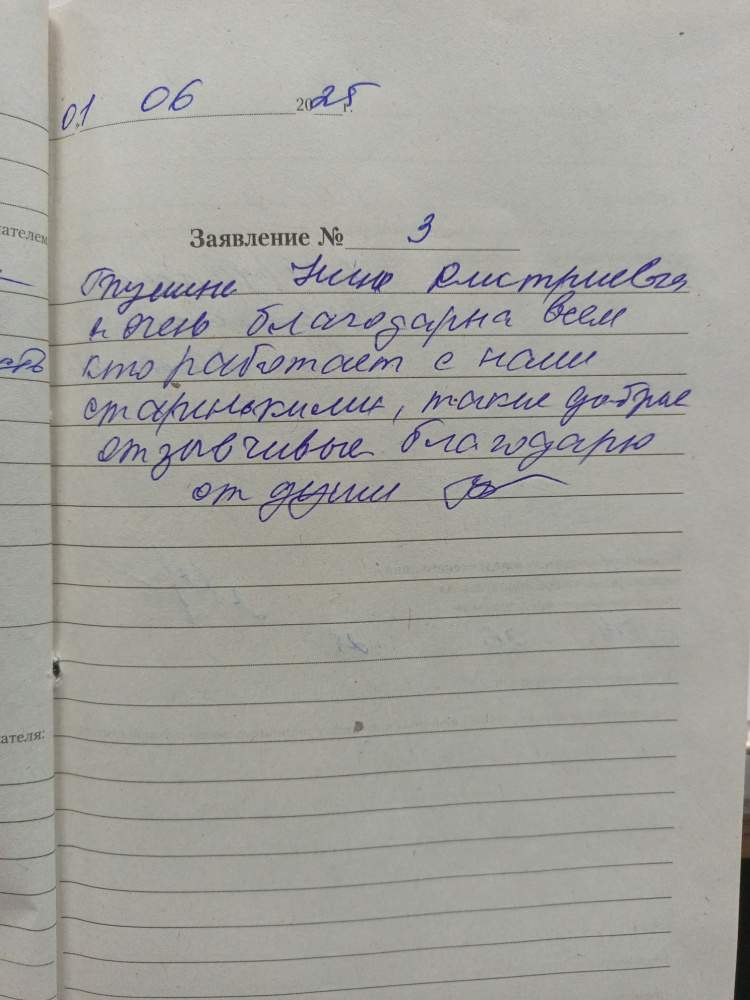 01 06 2025 г.
ателем
Заявление № 3
Нина Дмитриевна
я очень благодарна всем
сть
кто работает с нами
старинькими, такие добрые
отзывчивые благодарю
от души
ателя: